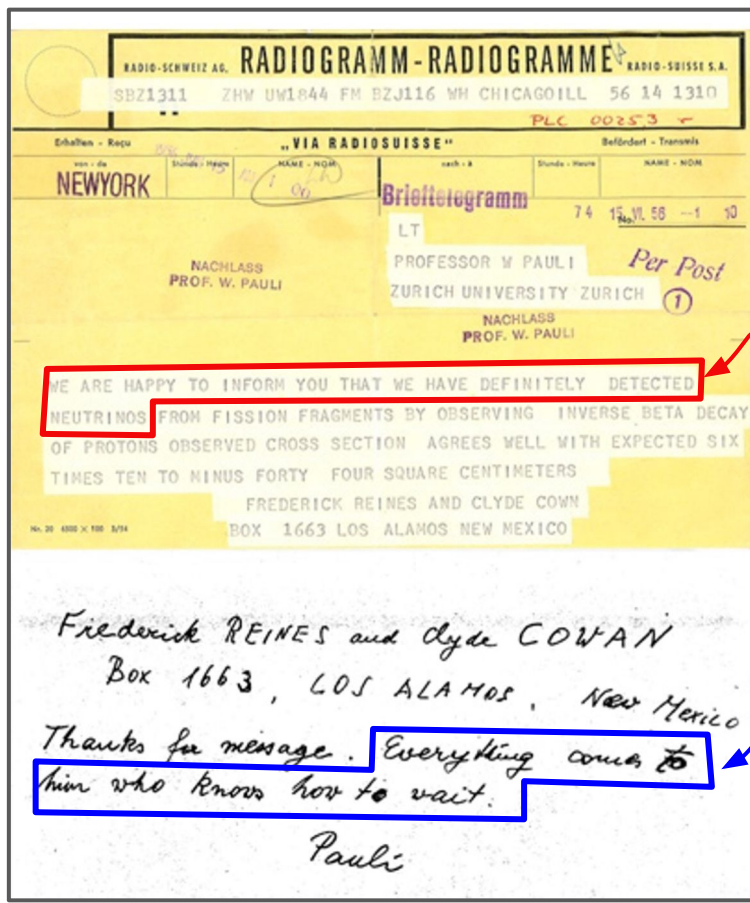 RADIO-SCHWEIZ AG. RADIOGRAMM-RADIOGRAMME RADIO-SUISSE S.A.
SBZ1311 ZHW UW1844 FM BZJ116 WH CHICAGOILL 56 14 1310
PLC 00253
Erhalten - Reçu „VIA RADIOSUISSE" Befördert - Transmis
von - de Stunde - Heure NAME - NOM nach - à Stunde - Heure NAME - NOM
NEWYORK
Brieftelegramm
74 15.VI.56 --1 10
LT
PROFESSOR W PAULI
Per Post
NACHLASS
PROF. W. PAULI
ZURICH UNIVERSITY ZURICH
1
NACHLASS
PROF. W. PAULI
WE ARE HAPPY TO INFORM YOU THAT WE HAVE DEFINITELY DETECTED
NEUTRINOS FROM FISSION FRAGMENTS BY OBSERVING INVERSE BETA DECAY
OF PROTONS OBSERVED CROSS SECTION AGREES WELL WITH EXPECTED SIX
TIMES TEN TO MINUS FORTY FOUR SQUARE CENTIMETERS
FREDERICK REINES AND CLYDE COWN
BOX 1663 LOS ALAMOS NEW MEXICO
Frederick REINES and Clyde COWAN
Box 1663, LOS ALAMOS, New Mexico
Thanks for message. Everything comes to
him who knows how to wait.
Pauli